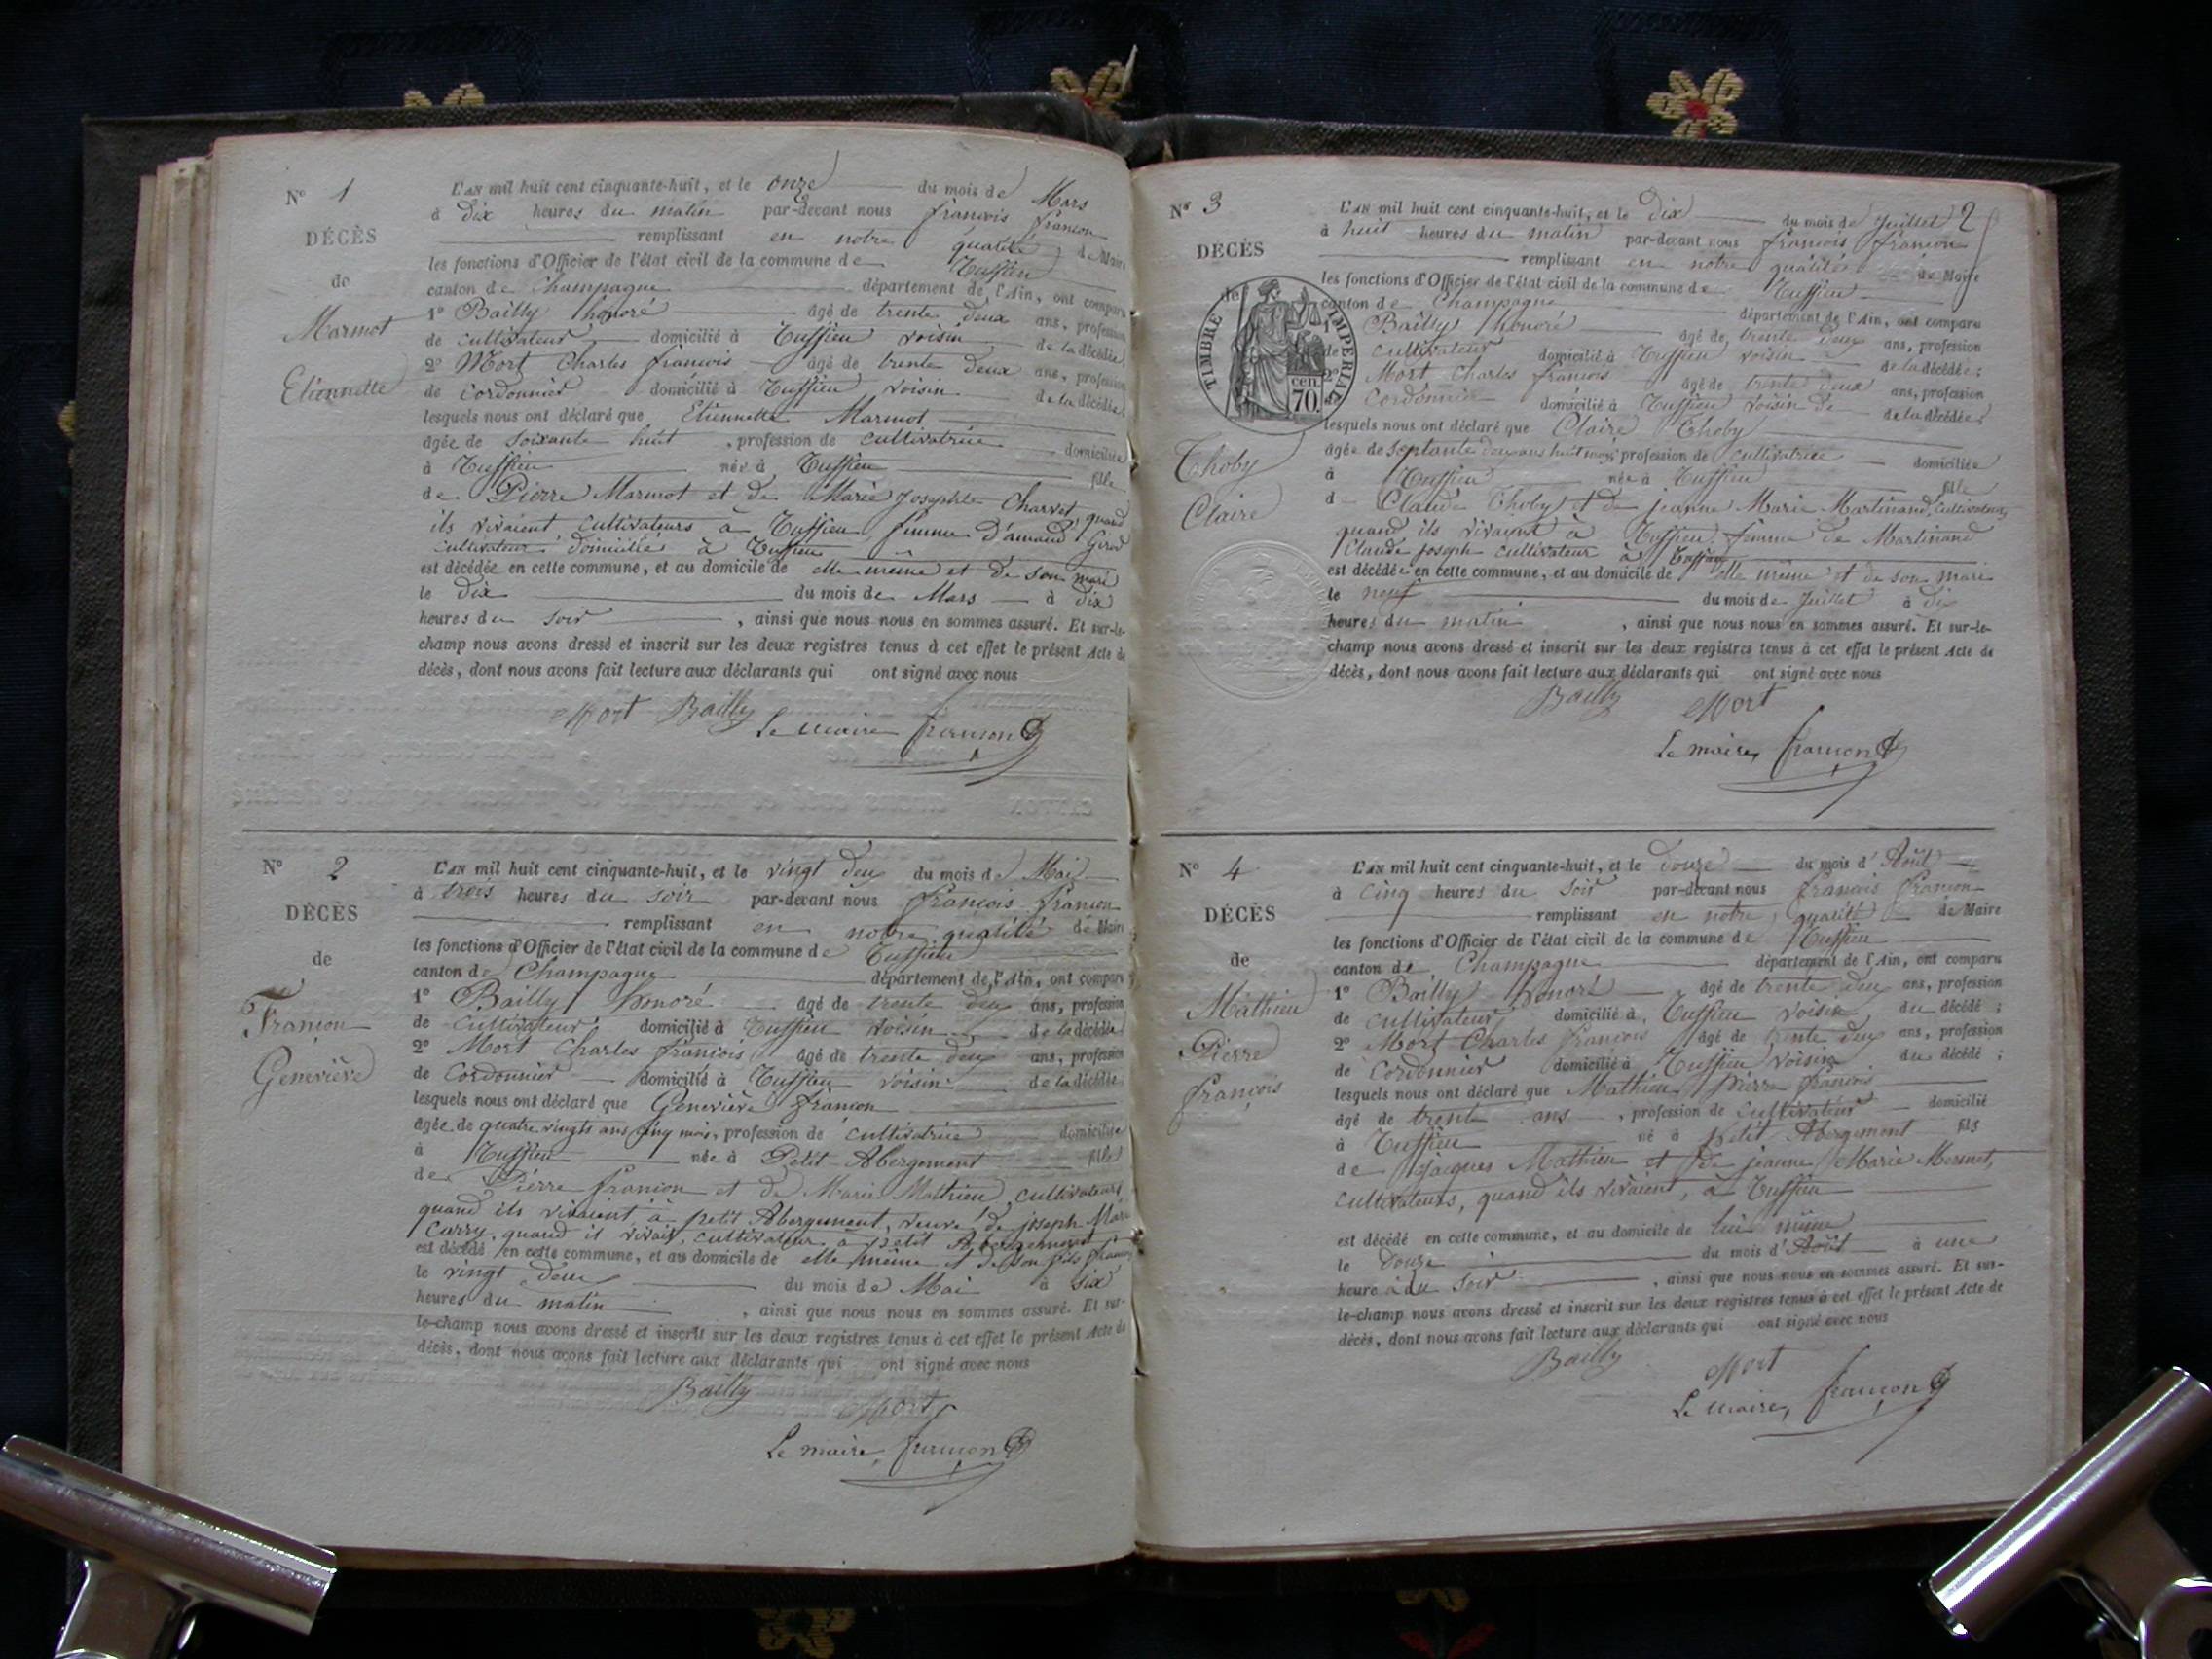 N° 1
DÉCÈS
de
Marmot
Etiennette
L'AN mil huit cent cinquante-huit, et le onze du mois de Mars
à dix heures du matin par-devant nous françois françon
remplissant en notre qualité de Maire
les fonctions d'Officier de l'état civil de la commune de Ruffieu
canton de Champagne département de l'Ain, ont comparu
1° Bailly honoré âgé de trente deux ans, profession
de cultivateur domicilié à Ruffieu voisin de la décédée;
2° Mort Charles françois âgé de trente deux ans, profession
de cordonnier domicilié à Ruffieu voisin de la décédée;
lesquels nous ont déclaré que Etiennette Marmot
âgée de soixante huit , profession de cultivatrice domiciliée
à Ruffieu née à Ruffieu fille
de Pierre Marmot et de Marie Josephte Charvet, quand
ils vivaient cultivateurs à Ruffieu femme d'amand Girod
cultivateur domicilié à Ruffieu
est décédée en cette commune, et au domicile de elle même et de son mari
le dix du mois de Mars à dix
heures du soir , ainsi que nous nous en sommes assuré. Et sur-le-
champ nous avons dressé et inscrit sur les deux registres tenus à cet effet le présent Acte de
décès, dont nous avons fait lecture aux déclarants qui ont signé avec nous
Mort Bailly Le maire françon
N° 2
DÉCÈS
de
Françon
Geneviève
L'AN mil huit cent cinquante-huit, et le vingt deux du mois de Mai
à trois heures du soir par-devant nous françois françon
remplissant en notre qualité de Maire
les fonctions d'Officier de l'état civil de la commune de Ruffieu
canton de Champagne département de l'Ain, ont comparu
1° Bailly honoré âgé de trente deux ans, profession
de cultivateur domicilié à Ruffieu voisin de la décédée;
2° Mort Charles françois âgé de trente deux ans, profession
de cordonnier domicilié à Ruffieu voisin de la décédée;
lesquels nous ont déclaré que Geneviève françon
âgée de quatre vingts ans cinq mois, profession de cultivatrice domiciliée
à Ruffieu née à Petit Abergement fille
de Pierre françon et de Marie Mathieu, cultivateurs,
quand ils vivaient à petit Abergement, veuve de joseph Marie
Carry, quand il vivait, cultivateur à petit Abergement
est décédé en cette commune, et au domicile de elle même et de son fils françois
le vingt deux du mois de Mai à six
heures du matin , ainsi que nous nous en sommes assuré. Et sur-
le-champ nous avons dressé et inscrit sur les deux registres tenus à cet effet le présent Acte de
décès, dont nous avons fait lecture aux déclarants qui ont signé avec nous
Bailly
Mort
Le maire, françon
2
N° 3
DÉCÈS
de
TIMBRE IMPÉRIAL
cen. 70.
Thoby
Claire
L'AN mil huit cent cinquante-huit, et le dix du mois de Juillet
à huit heures du matin par-devant nous françois françon
remplissant en notre qualité de Maire
les fonctions d'Officier de l'état civil de la commune de Ruffieu
canton de Champagne département de l'Ain, ont comparu
1° Bailly honoré âgé de trente deux ans, profession
de cultivateur domicilié à Ruffieu voisin de la décédée;
2° Mort Charles françois âgé de trente deux ans, profession
cordonnier domicilié à Ruffieu voisin de de la décédée;
lesquels nous ont déclaré que Claire Thoby
âgée de septante deux ans huit mois profession de cultivatrice domiciliée
à Ruffieu née à Ruffieu fille
de Claude Thoby et de jeanne Marie Martinand, cultivateurs,
quand ils vivaient à Ruffieu, femme de Martinand
Claude joseph cultivateur à Ruffieu
est décédée en cette commune, et au domicile de elle même et de son mari
le neuf du mois de Juillet à dix
heures du matin , ainsi que nous nous en sommes assuré. Et sur-le-
champ nous avons dressé et inscrit sur les deux registres tenus à cet effet le présent Acte de
décès, dont nous avons fait lecture aux déclarants qui ont signé avec nous
Bailly Mort
Le maire, françon
N° 4
DÉCÈS
de
Mathieu
Pierre
françois
L'AN mil huit cent cinquante-huit, et le douze du mois d'Août
à cinq heures du soir par-devant nous françois françon
remplissant en notre qualité de Maire
les fonctions d'Officier de l'état civil de la commune de Ruffieu
canton de Champagne département de l'Ain, ont comparu
1° Bailly honoré âgé de trente deux ans, profession
de cultivateur domicilié à Ruffieu voisin du décédé ;
2° Mort Charles françois âgé de trente deux ans, profession
de cordonnier domicilié à Ruffieu voisin du décédé ;
lesquels nous ont déclaré que Mathieu pierre françois
âgé de trente ans , profession de cultivateur domicilié
à Ruffieu né à petit Abergement fils
de Jacques Mathieu et de jeanne Marie Mermet,
cultivateurs, quand ils vivaient, à Ruffieu
est décédé en cette commune, et au domicile de lui même
le douze du mois d'Août à une
heure à du soir , ainsi que nous nous en sommes assuré. Et sur-
le-champ nous avons dressé et inscrit sur les deux registres tenus à cet effet le présent Acte de
décès, dont nous avons fait lecture aux déclarants qui ont signé avec nous
Bailly Mort
Le maire, françon